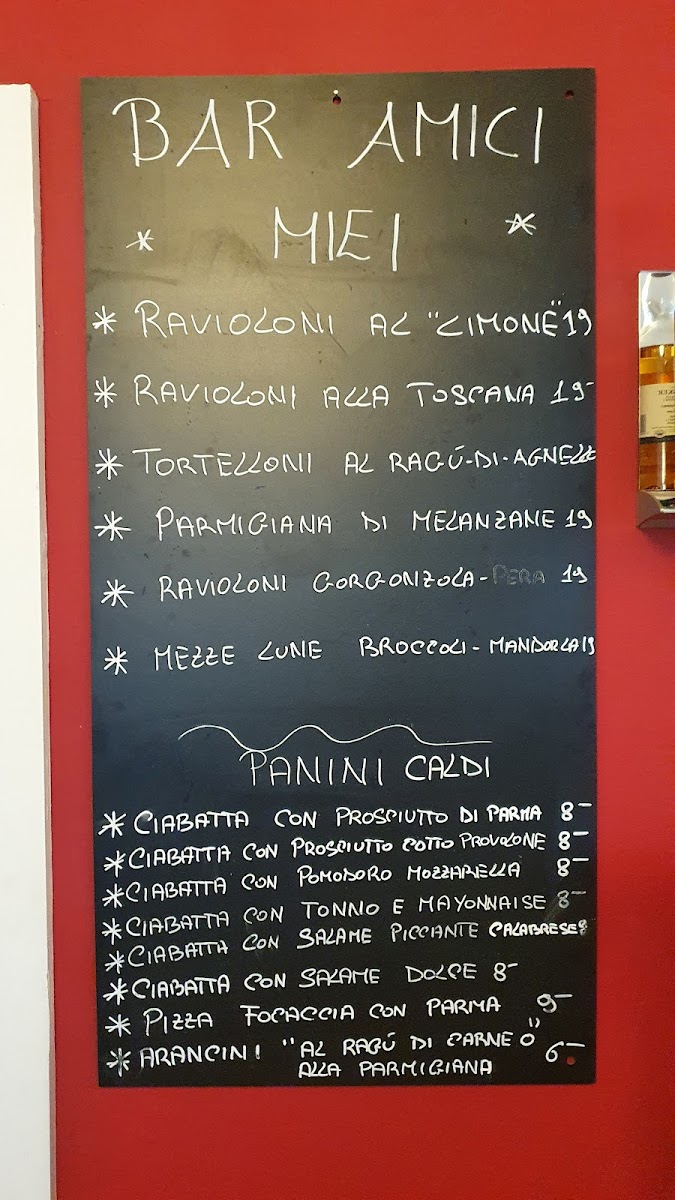 BAR AMICI
* MIEI *
* RAVIOLONI AL "LIMONE" 19
* RAVIOLONI ALLA TOSCANA 19-
* TORTELLONI AL RAGÚ-DI-AGNELLE
* PARMIGIANA DI MELANZANE 19
* RAVIOLONI GORGONZOLA-PERA 19
* MEZZE LUNE BROCCOLI-MANDORLA 19
PANINI CALDI
* CIABATTA CON PROSCIUTTO DI PARMA 8-
* CIABATTA CON PROSCIUTTO COTTO PROVOLONE 8-
* CIABATTA CON POMODORO MOZZARELLA 8-
* CIABATTA CON TONNO E MAYONNAISE 8-
* CIABATTA CON SALAME PICCANTE CALABRESE 8
* CIABATTA CON SALAME DOLCE 8-
* PIZZA FOCACCIA CON PARMA 9-
* ARANCINI "AL RAGÚ DI CARNE O" 6-
ALLA PARMIGIANA